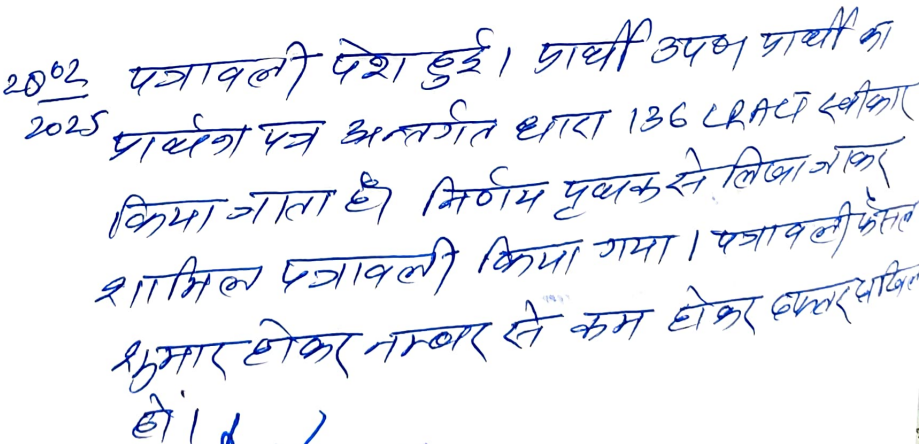 20/02/2025 पत्रावली पेश हुई। प्रार्थी उप० प्रार्थी का
प्रार्थना पत्र अन्तर्गत धारा 136 LRACT स्वीकार
किया जाता है। निर्णय पृथक से लिखा जाकर
शामिल पत्रावली किया गया। पत्रावली फैसल
शुमार होकर नम्बर से कम होकर दफ्तर दाखिल
हो।